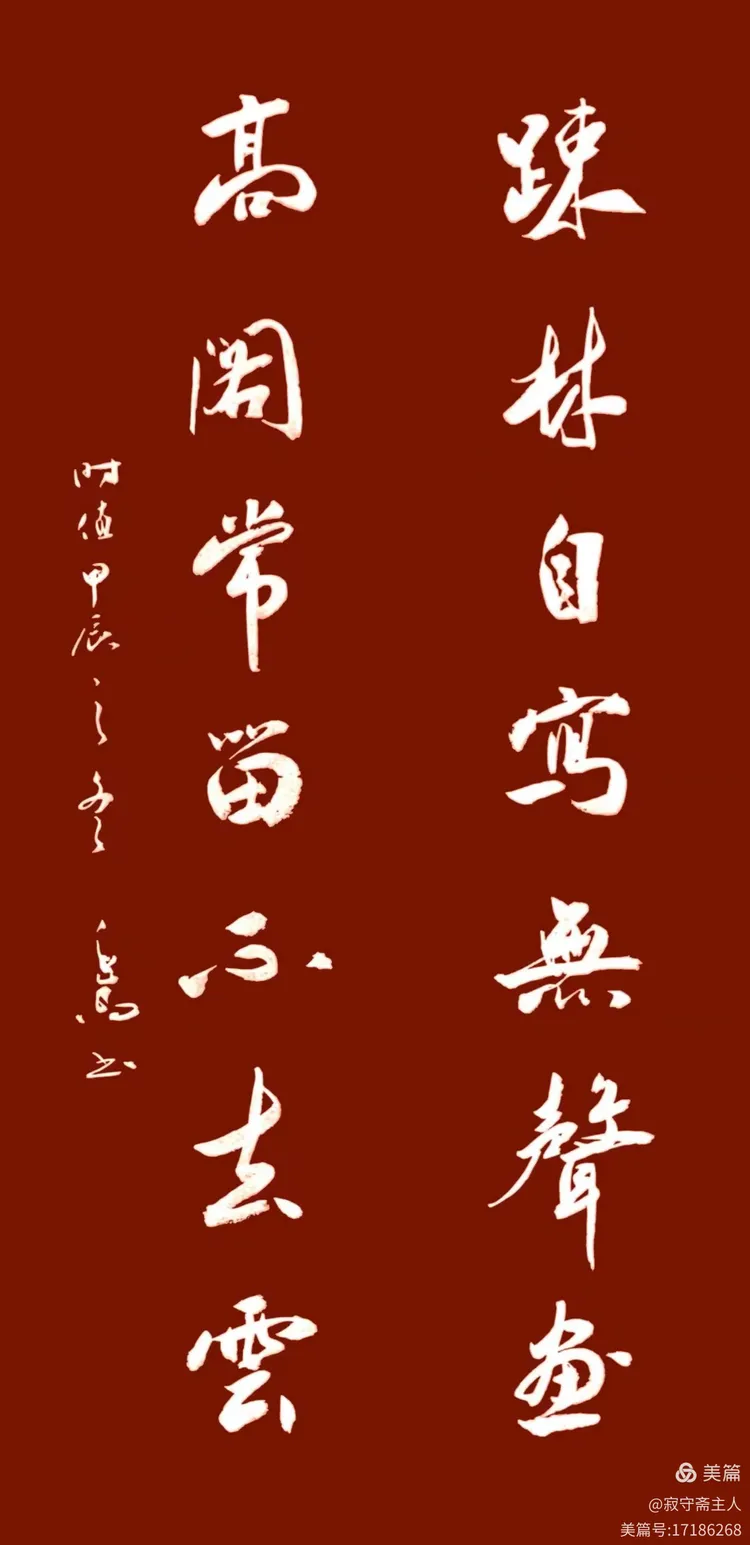 踈林自写無聲画
高閣常留不去雲
时值甲辰之冬
书
美篇
@寂守斋主人
美篇号:17186268